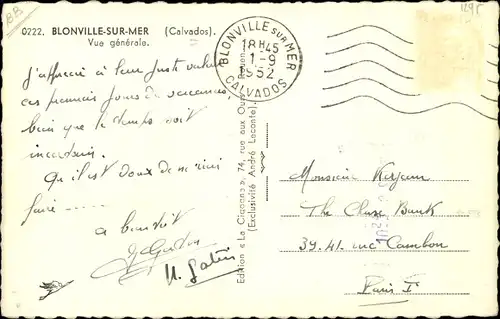 0222. BLONVILLE-SUR-MER (Calvados).
Vue générale.
BLONVILLE SUR MER
18H45
1-9
1952
CALVADOS
J'apprécie à leur juste valeur
ces premiers jours de vacances,
bien que le temps soit
incertain.
Qu'il est doux de ne rien
faire ------
a bientôt
Edition « La Cigogne », 74, rue aux Ours, Rouen
(Exclusivité André Lecomte).
Monsieur
The Chase Bank
39.41 rue Cambon
Paris 1er